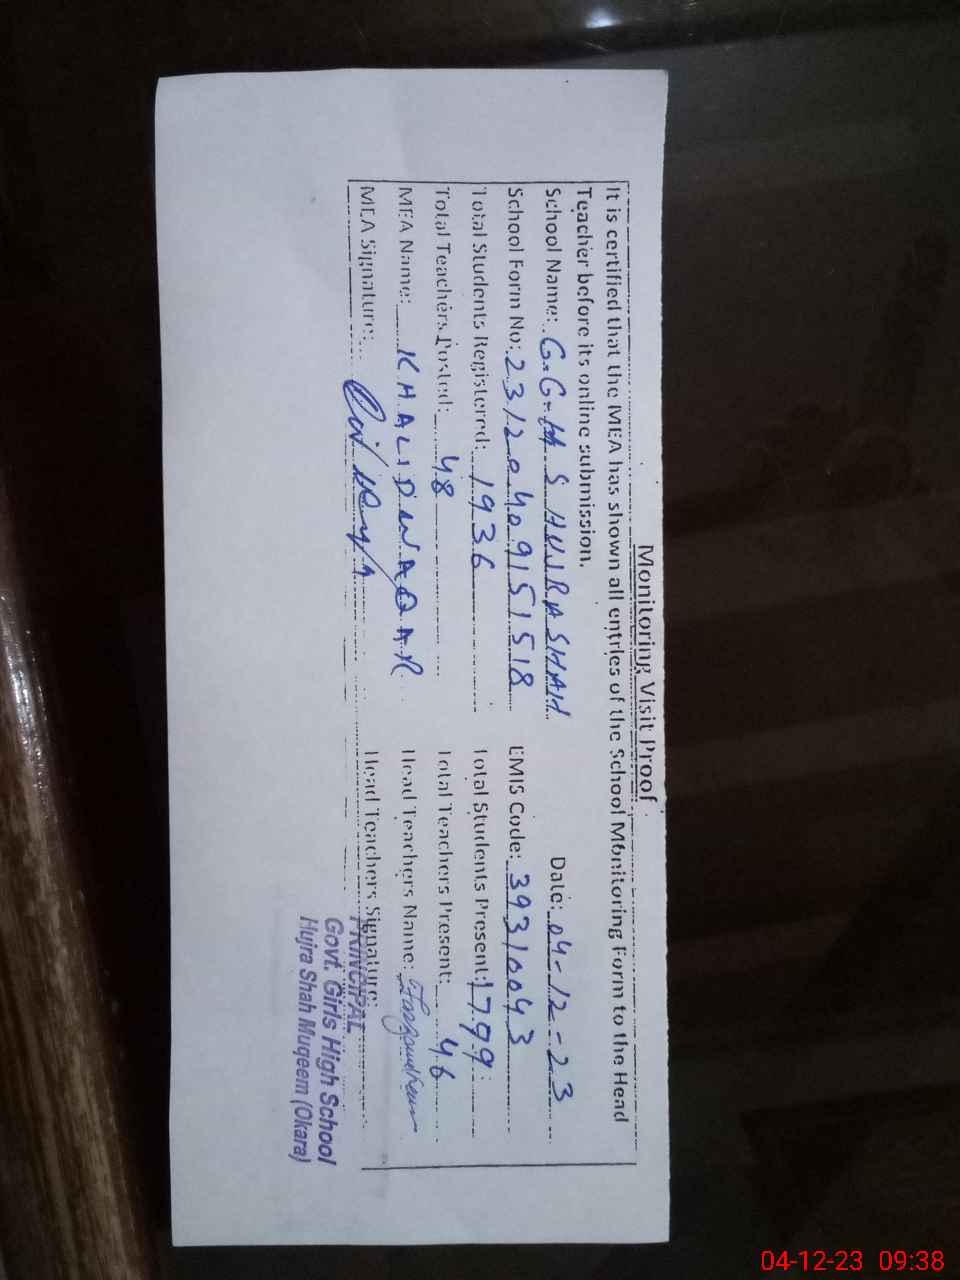 Monitoring Visit Proof
It is certified that the MEA has shown all entries of the School Monitoring Form to the Head
Teacher before its online submission.
School Name: G.G.H.S HUJRA SHAH Date: 04-12-23
School Form No: 23120409151518 EMIS Code: 39310043
Total Students Registered: 1936 Total Students Present: 1799
Total Teachers Posted: 48 Total Teachers Present: 46
MEA Name: KHALID WAQAR Head Teachers Name:
MEA Signature: Head Teachers Signature:
PRINCIPAL
Govt. Girls High School
Hujra Shah Muqeem (Okara)
04-12-23 09:38